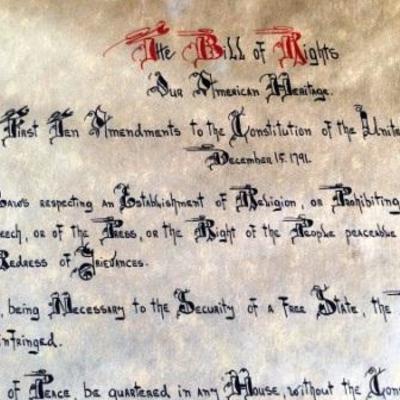 The Bill of Rights
Our American Heritage.
First Ten Amendments to the Constitution of the Unite
December 15, 1791.
Laws respecting an Establishment of Religion, or Prohibiting
eech, or of the Press, or the Right of the People peaceable
Redress of Grievances.
, being Necessary to the Security of a Free State, the
infringed.
of Peace, be quartered in any House, without the Con